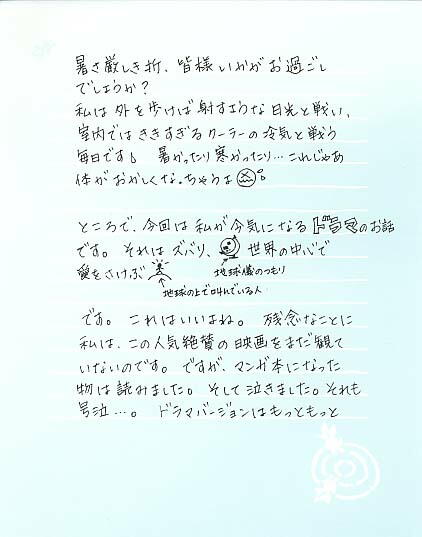 暑さ厳しき折、皆様いかがお過ごし
でしょうか?
私は外を歩けば射すような日光と戦い、
室内ではききすぎるクーラーの冷気と戦う
毎日です。暑かったり寒かったり…これじゃあ
体がおかしくなっちゃうよ
ところで、今回は私が今気になるドラマのお話
です。それはズバリ、世界の中心で
愛をさけぶ
地球儀のつもり
地球の上で叫んでいる人
です。これはいいよね。残念なことに
私は、この人気絶賛の映画をまだ観て
いないのです。ですが、マンガ本になった
物は読みました。そして泣きました。それも
号泣…。ドラマバージョンはもっともっと